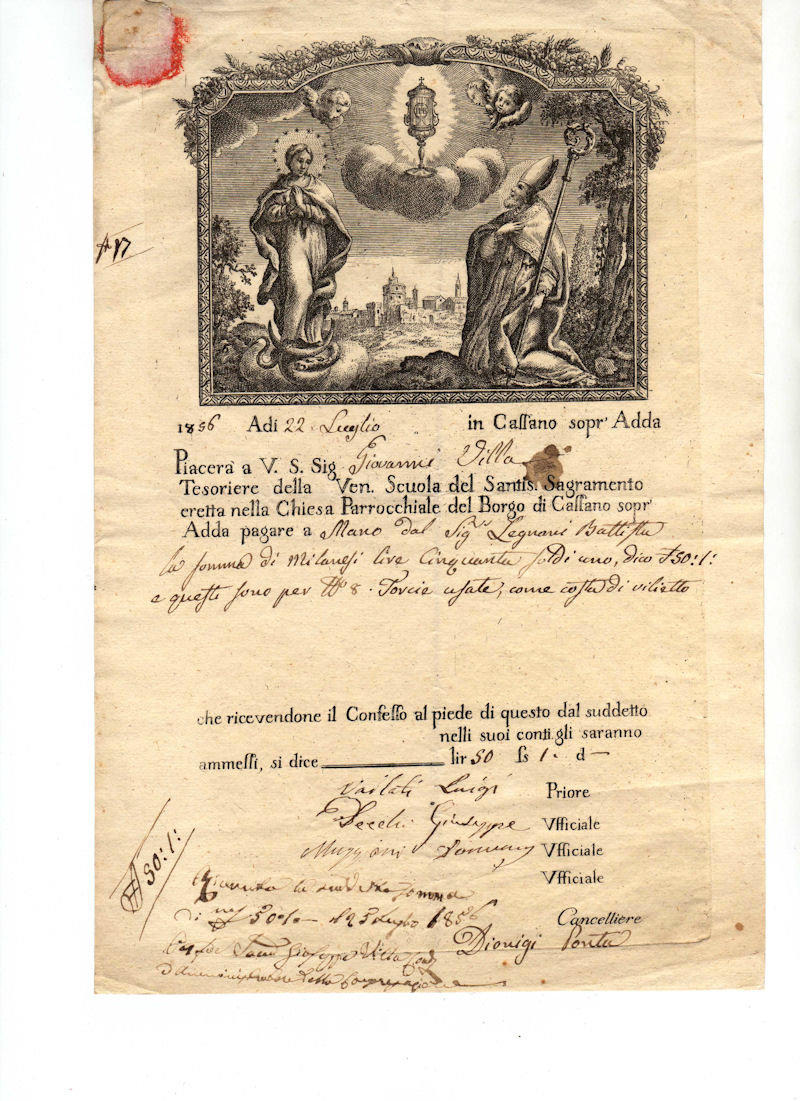 1856 Adi 22 Luglio in Cassano sopr' Adda
Piacerà a V. S. Sig Giovanni Villa
Tesoriere della Ven. Scuola del Santis. Sagramento
eretta nella Chiesa Parrocchiale del Borgo di Cassano sopr'
Adda pagare a Mano dal Sig.r Legnani Battista
la somma di Milanesi lire Cinquanta soldi uno, dico £50:1:
e questi sono per 8. Torcie usate, come costa di vilietto
che ricevendone il Confesso al piede di questo dal suddetto
nelli suoi conti gli saranno
ammessi, si dice lir 50 ss 1. d —
Vailati Luigi Priore
Giuseppe Vfficiale
Vfficiale
Vfficiale
£ 50:1:
la somma
di 50 1856 Cancelliere
Giuseppe Villa Dionigi Ponta
della